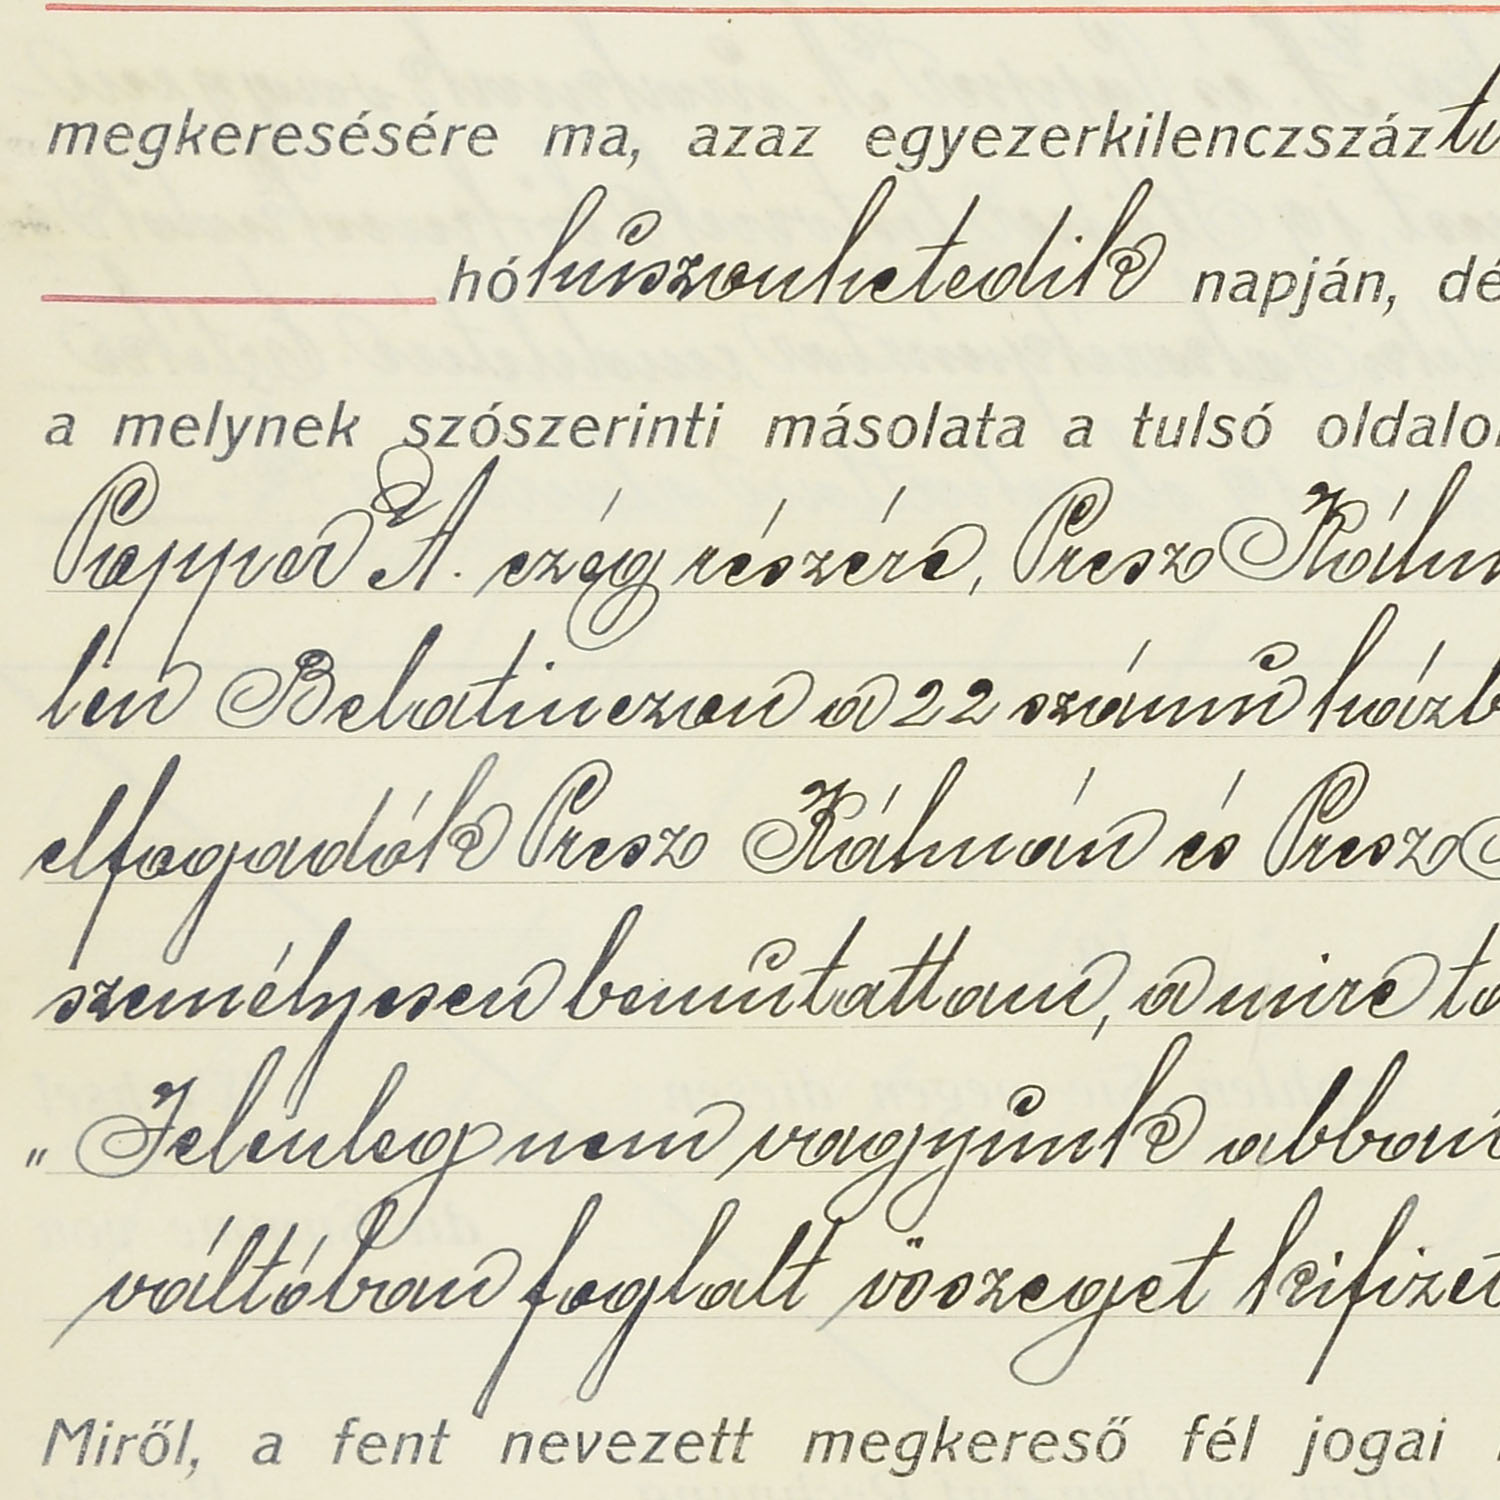 megkeresésére ma, azaz egyezerkilenczszáz
hó huszonhetedik napján, dé
a melynek szószerinti másolata a tulsó oldalo
Pepper A. czég részére, Presz Kálm
len Belatinczon a 22 számú házb
elfogadók Presz Kálmán és Presz
személyesen bemutattam, a mire ta
„Jelenleg nem vagyunk abban
váltóban foglalt összeget kifizet
Miről, a fent nevezett megkereső fél jogai